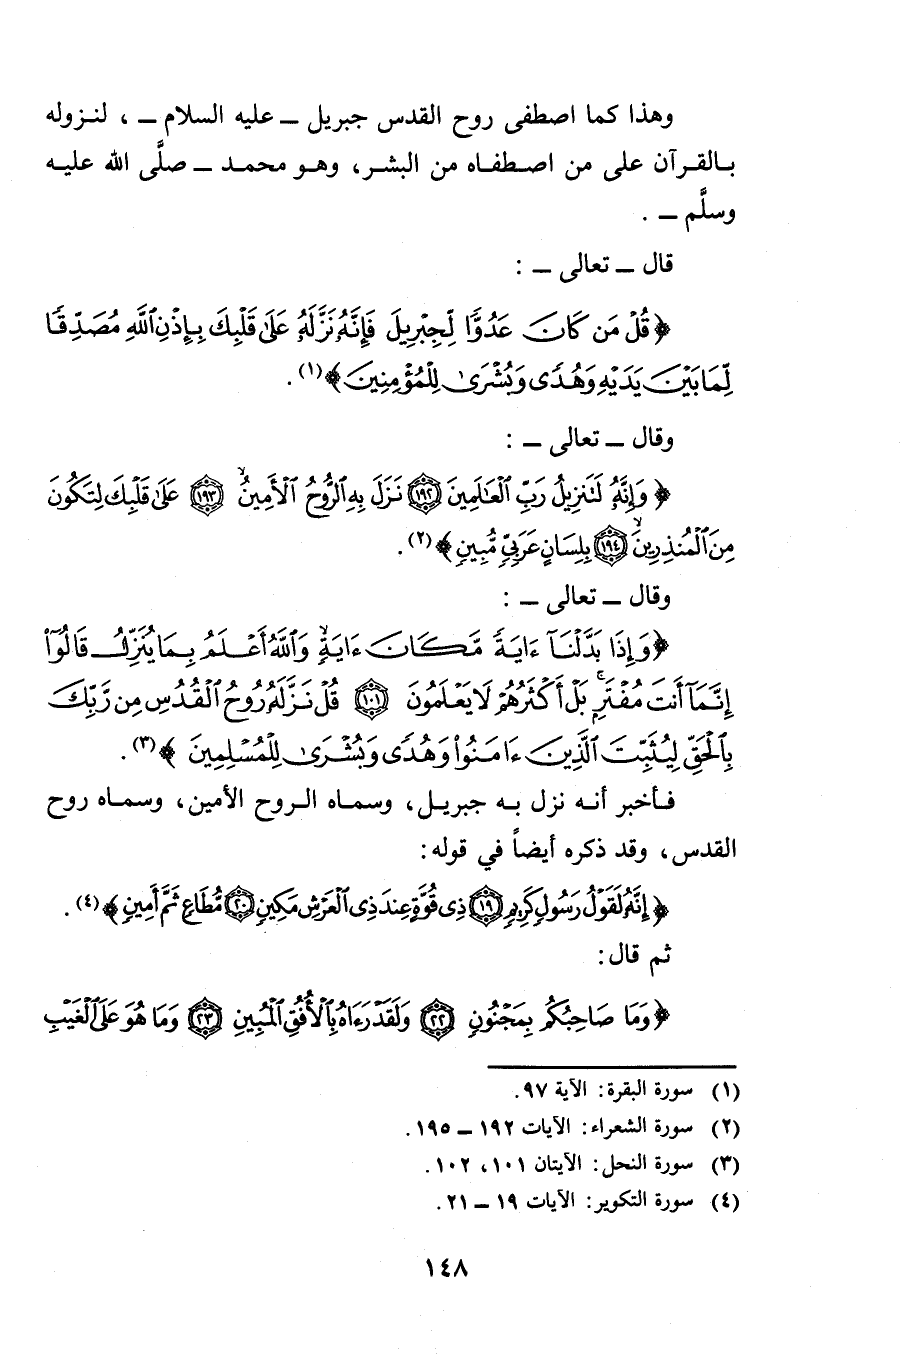 وهذا كما اصطفى روح القدس جبريل ــ عليه السلام ــ ، لنزوله
بالقرآن على من اصطفاه من البشر، وهو محمد ــ صلَّى الله عليه
وسلَّم ــ .
قال ــ تعالى ــ :
﴿ قُلْ مَن كَانَ عَدُوًّا لِّجِبْرِيلَ فَإِنَّهُ نَزَّلَهُ عَلَىٰ قَلْبِكَ بِإِذْنِ اللَّهِ مُصَدِّقًا
لِّمَا بَيْنَ يَدَيْهِ وَهُدًى وَبُشْرَىٰ لِلْمُؤْمِنِينَ ﴾(١).
وقال ــ تعالى ــ :
﴿ وَإِنَّهُ لَتَنزِيلُ رَبِّ الْعَالَمِينَ ١٩٢ نَزَلَ بِهِ الرُّوحُ الْأَمِينُ ١٩٣ عَلَىٰ قَلْبِكَ لِتَكُونَ
مِنَ الْمُنذِرِينَ ١٩٤ بِلِسَانٍ عَرَبِيٍّ مُّبِينٍ ﴾(٢).
وقال ــ تعالى ــ :
﴿ وَإِذَا بَدَّلْنَآ ءَايَةً مَّكَانَ ءَايَةٍ وَاللَّهُ أَعْلَمُ بِمَا يُنَزِّلُ قَالُوٓا
إِنَّمَآ أَنتَ مُفْتَرٍ بَلْ أَكْثَرُهُمْ لَا يَعْلَمُونَ ١٠١ قُلْ نَزَّلَهُ رُوحُ الْقُدُسِ مِن رَّبِّكَ
بِالْحَقِّ لِيُثَبِّتَ الَّذِينَ ءَامَنُوا وَهُدًى وَبُشْرَىٰ لِلْمُسْلِمِينَ ﴾(٣).
فأخبر أنه نزل به جبريل، وسماه الروح الأمين، وسماه روح
القدس، وقد ذكره أيضاً في قوله:
﴿ إِنَّهُ لَقَوْلُ رَسُولٍ كَرِيمٍ ١٩ ذِى قُوَّةٍ عِندَ ذِى الْعَرْشِ مَكِينٍ ٢٠ مُّطَاعٍ ثَمَّ أَمِينٍ ﴾(٤).
ثم قال:
﴿ وَمَا صَاحِبُكُم بِمَجْنُونٍ ٢٢ وَلَقَدْ رَءَاهُ بِالْأُفُقِ الْمُبِينِ ٢٣ وَمَا هُوَ عَلَى الْغَيْبِ
(١) سورة البقرة: الآية ٩٧.
(٢) سورة الشعراء: الآيات ١٩٢ ــ ١٩٥.
(٣) سورة النحل: الآيتان ١٠١، ١٠٢.
(٤) سورة التكوير: الآيات ١٩ ــ ٢١.
١٤٨